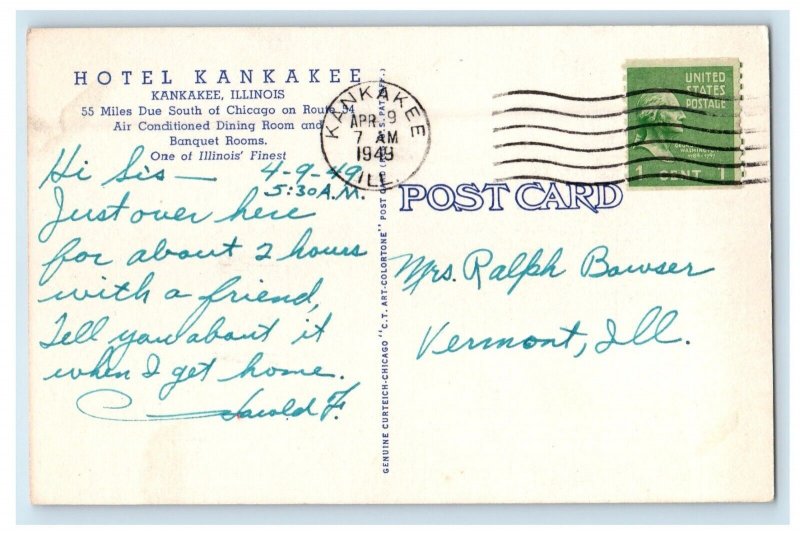 HOTEL KANKAKEE
KANKAKEE, ILLINOIS
55 Miles Due South of Chicago on Route 54
Air Conditioned Dining Room and
Banquet Rooms.
One of Illinois' Finest
Hi Sis — 4-9-49
5:30 A.M.
Just over here
for about 2 hours
with a friend,
Tell you about it
when I get home.
Harold F.
GENUINE CURTEICH-CHICAGO "C.T. ART-COLORTONE" POST CARD (REG. U.S. PAT. OFF.)
KANKAKEE
APR 9
7 AM
1949
ILL.
UNITED
STATES
POSTAGE
1 CENT 1
POST CARD
Mrs. Ralph Bowser
Vermont, Ill.